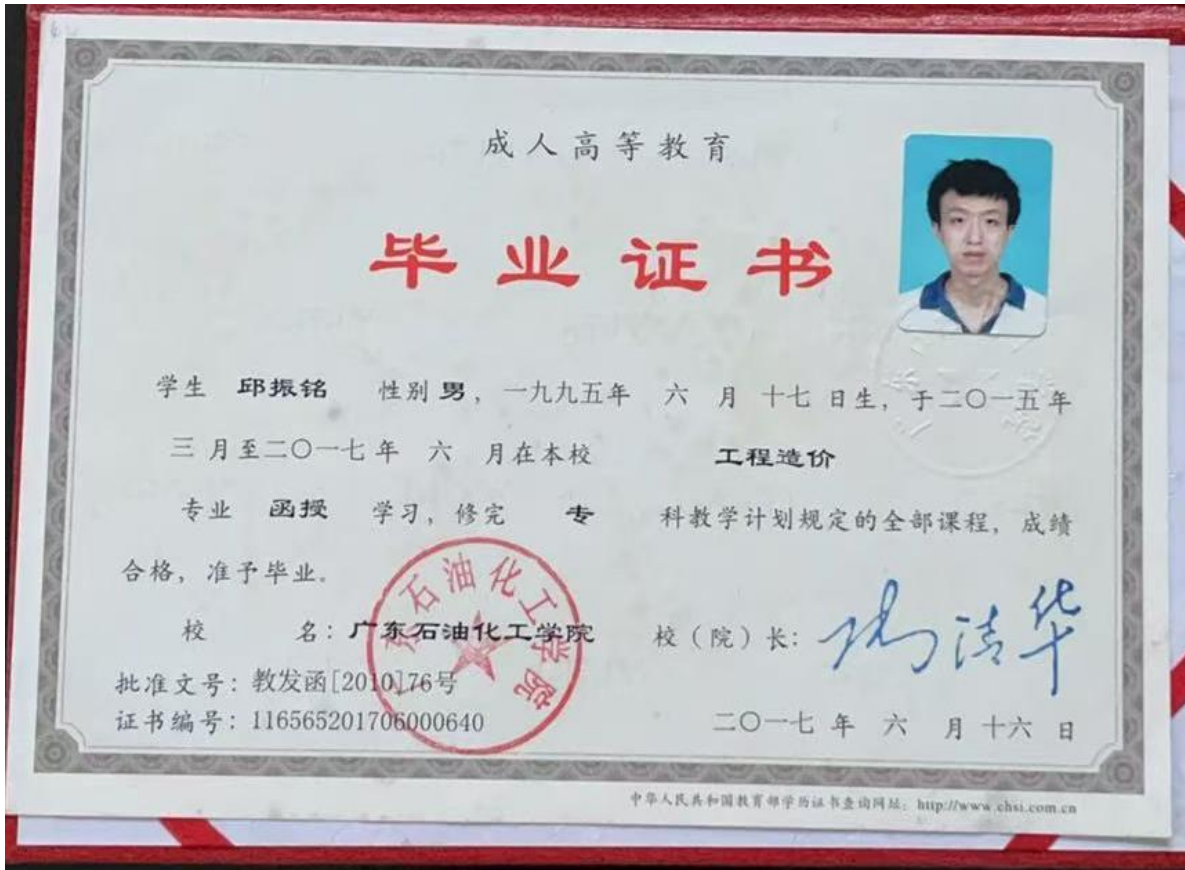 成人高等教育
毕业证书
学生 邱振铭 性别 男，一九九五年 六 月 十七 日生，于二〇一五年
三 月至二〇一七年 六 月在本校 工程造价
专业 函授 学习，修完 专 科教学计划规定的全部课程，成绩
合格，准予毕业。
校 名：广东石油化工学院 校（院）长：
批准文号：教发函[2010]76号
证书编号：116565201706000640 二〇一七年 六 月 十六 日
中华人民共和国教育部学历证书查询网址：http://www.chsi.com.cn
广东石油化工学院